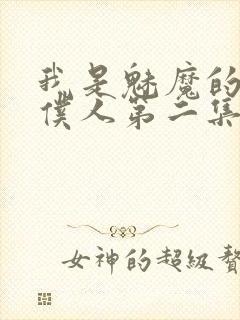 我是魅魔的
僕人第二集
女神的超級贅